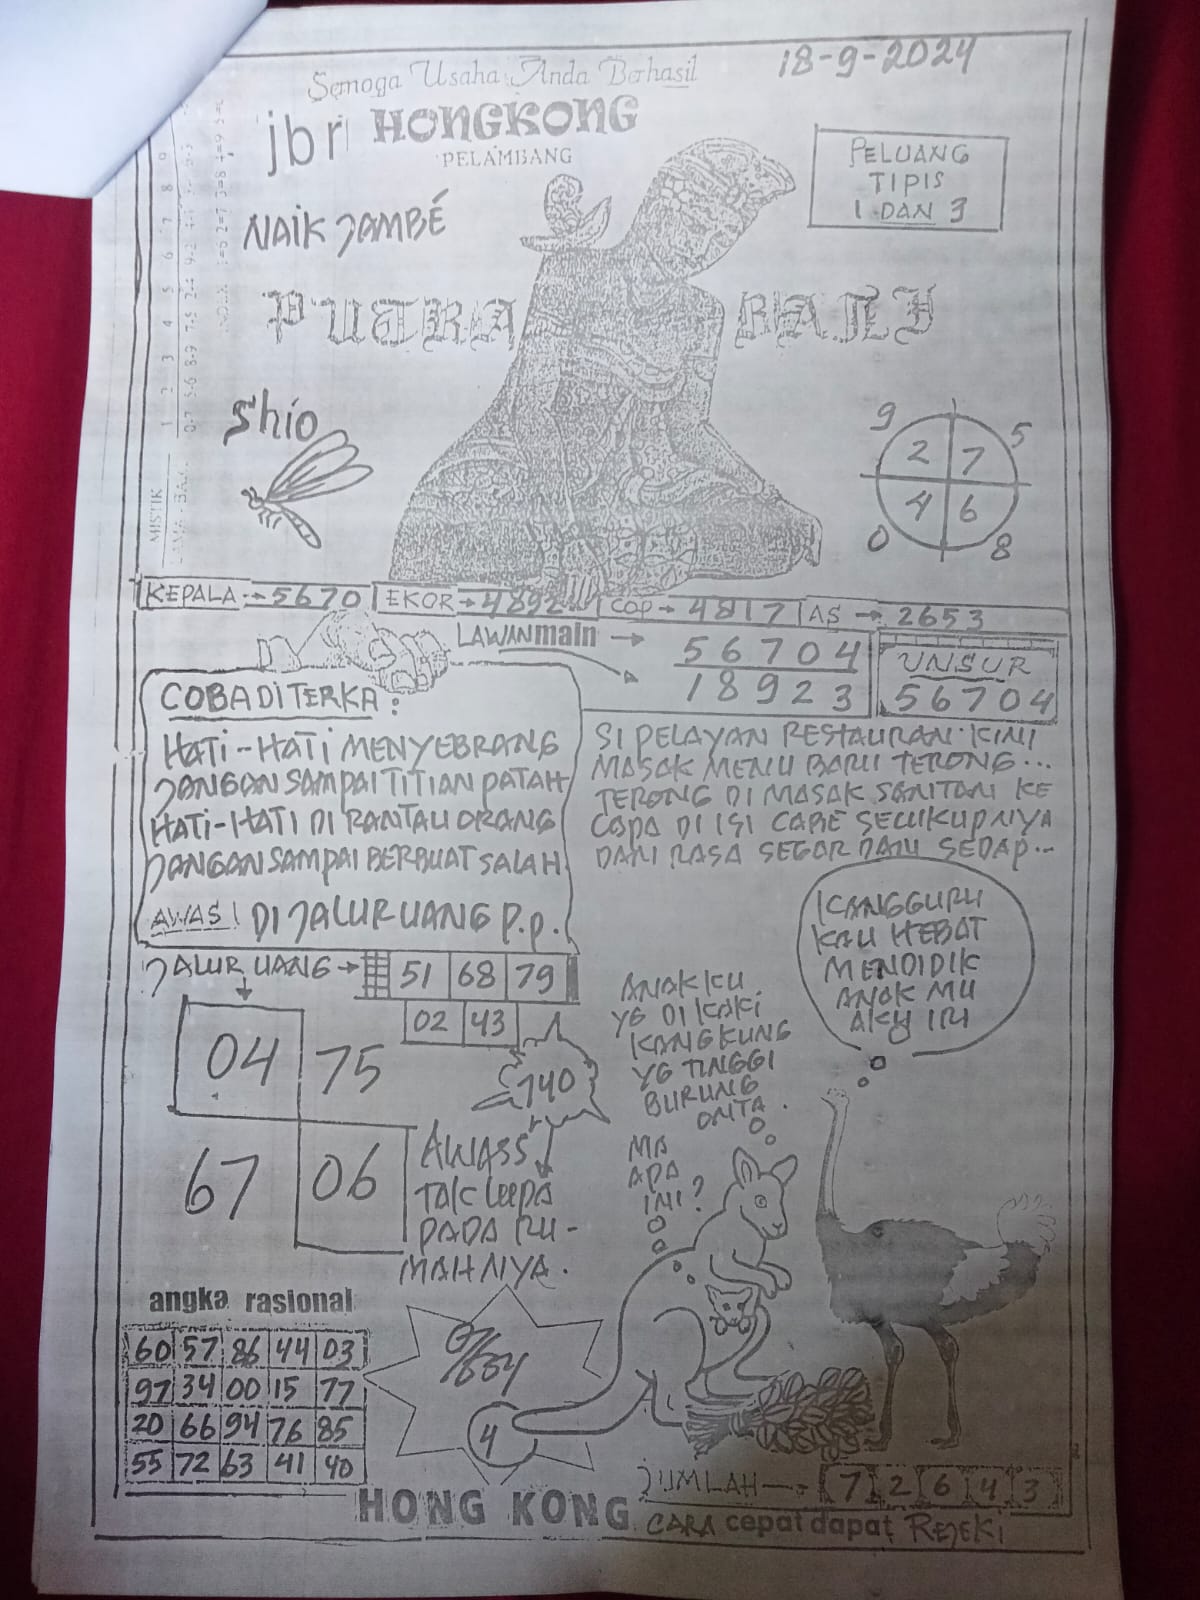 18-9-2024
Semoga Usaha Anda Berhasil
jbr HONGKONG
PELAMBANG
PELUANG
TIPIS
1 DAN 3
NAIK JAMBÉ
PUTRA BALI
Shio
MISTIK
1 2 3 4 5 6 7 8 9
9 5
2 7
4 6
0 8
KEPALA → 5670 EKOR → 4892 COP → 4817 AS → 2653
LAWAN main → 56704
18923
UNSUR
56704
COBA DI TERKA:
HATI-HATI MENYEBRANG
JANGAN SAMPAI TITIAN PATAH
HATI-HATI DI RANTAU ORANG
JANGAN SAMPAI BERBUAT SALAH
AWAS! DI JALUR UANG P.P.
SI PELAYAN RESTAURAN KINI
MASAK MENU BARU TERONG...
TERONG DI MASAK SANTAN KE
LAPA DI ISI CABE SECUKUPNYA
DAN RASA SEGAR DAN SEDAP...
KANGGURU
KAU HEBAT
MENDIDIK
ANAK MU
AKU IRI
JALUR UANG → 51 68 79
02 43
04 75
67 06
740
AWASS
TAK LUPA
PADA RU-
MAHNYA.
ANAKKU
YG DI KAKI
KANGKUNG
YG TINGGI
BURUNG
ONTA.
MA
APA
INI?
angka rasional
60 57 86 44 03
97 34 00 15 77
20 66 94 76 85
55 72 63 41 40
4
JUMLAH → 7 2 6 4 3
HONG KONG CARA cepat dapat REJEKI